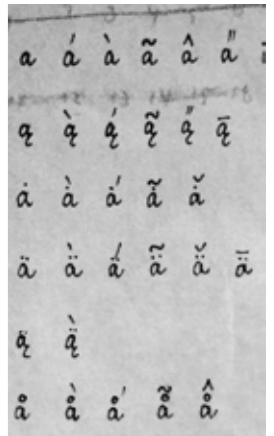 a á à ã â a̋
ą ą̀ ą́ ą̃ ą̋ ą̄
ȧ ȧ̀ ȧ́ ȧ̃ ȧ̌
ä ä̀ ä́ ä̃ ä̌ ǟ
ą̈ ą̈̀
å å̀ ǻ å̃ å̂